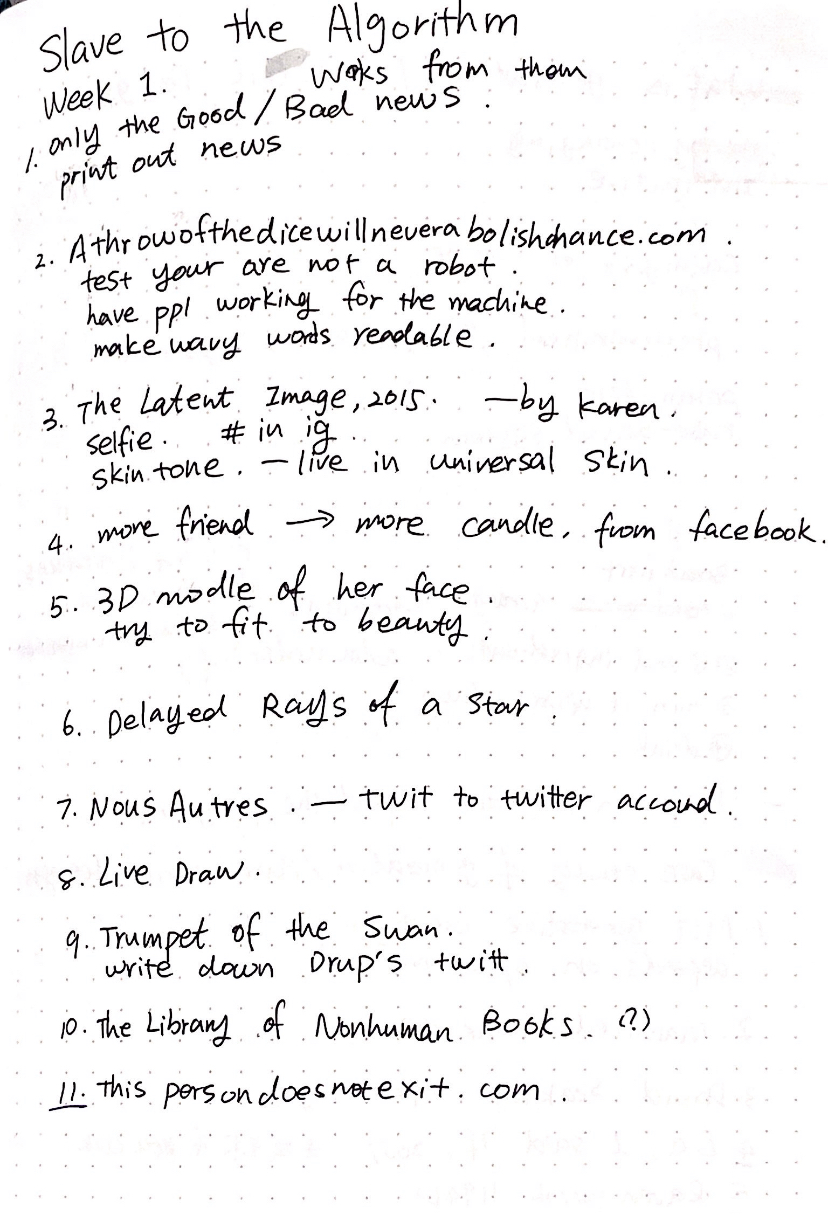 Slave to the Algorithm
Week 1. Woks from them
1. only the Good / Bad news.
print out news
2. Athrowofthedicewillneverabolishchance.com.
test your are not a robot.
have ppl working for the machine.
make wavy words readable.
3. The Latent Image, 2015. — by karen.
selfie. # in ig.
skin tone. — live in universal skin.
4. more friend → more candle, from facebook.
5. 3D modle of her face.
try to fit to beauty.
6. Delayed Rays of a Star.
7. Nous Autres. — twit to twitter accound.
8. Live Draw.
9. Trumpet of the Swan.
write down Drup's twitt.
10. The Library of Nonhuman Books. (?)
11. this persondoesnotexit.com.